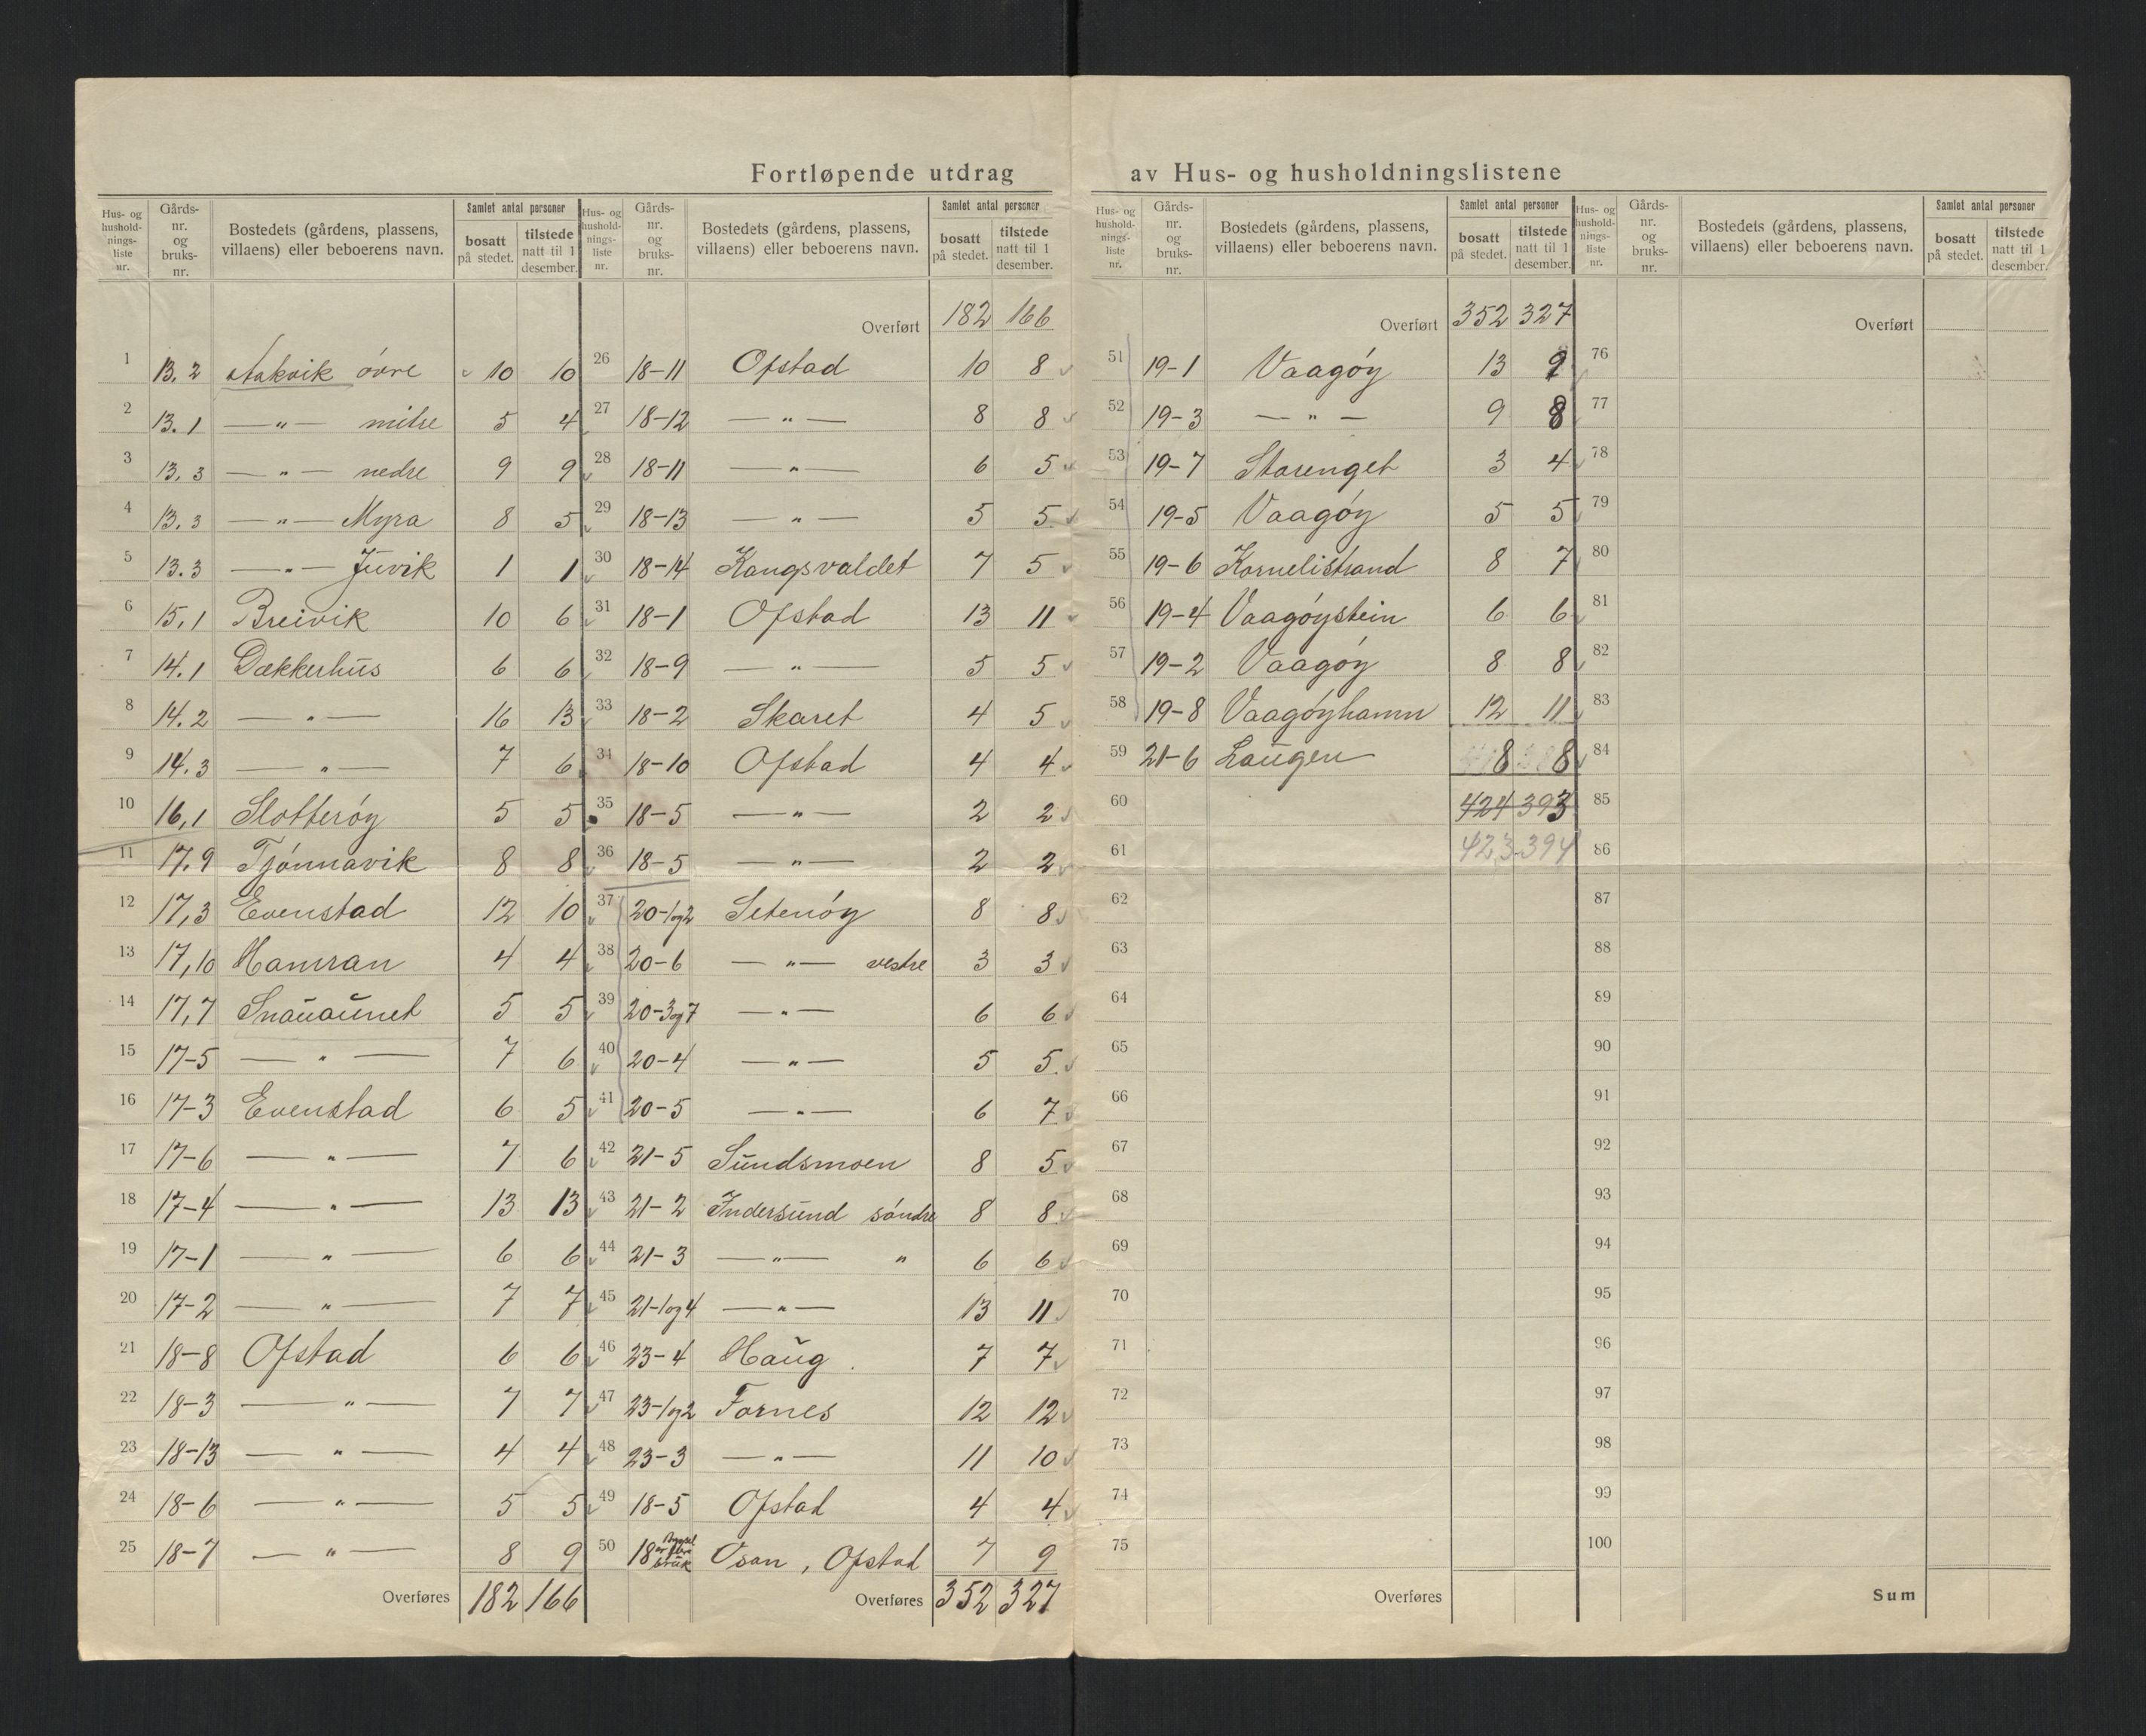 Fortløpende utdrag av Hus- og husholdningslistene
Hus- og hushold-nings-liste nr. | Gårds-nr. og bruks-nr. | Bostedets (gårdens, plassens, villaens) eller beboerens navn. | Samlet antal personer | bosatt på stedet. | tilstede natt til 1 desember.
1 13.2 Aakvik övre 10 10
2 13.1 —"— mitre 5 4
3 13.3 —"— nedre 9 9
4 13.3 —"— Myra 8 5
5 13.3 —"— Juvik 1 1
6 15,1 Breivik 10 6
7 14.1 Dækkerhus 6 6
8 14.2 —"— 16 13
9 14.3 —"— 7 6
10 16,1 Slotteröy 5 5
11 17.9 Tjönnavik 8 8
12 17,3 Evenstad 12 10
13 17,10 Hamran 4 4
14 17,7 Snauaunet 5 5
15 17-5 —"— 7 6
16 17-3 Evenstad 6 5
17 17-6 —"— 7 6
18 17-4 —"— 13 13
19 17-1 —"— 6 6
20 17-2 —"— 7 7
21 18-8 Ofstad 6 6
22 18-3 —"— 7 7
23 18-13 —"— 4 4
24 18-6 —"— 5 5
25 18-7 —"— 8 9
Overføres 182 166
Hus- og hushold-nings-liste nr. | Gårds-nr. og bruks-nr. | Bostedets (gårdens, plassens, villaens) eller beboerens navn. | Samlet antal personer | bosatt på stedet. | tilstede natt til 1 desember.
Overført 182 166
26 18-11 Ofstad 10 8
27 18-12 —"— 8 8
28 18-11 —"— 6 5
29 18-13 —"— 5 5
30 18-14 Kangsvaldet 7 5
31 18-1 Ofstad 13 11
32 18-9 —"— 5 5
33 18-2 Skaret 4 5
34 18-10 Ofstad 4 4
35 18-5 —"— 2 2
36 18-5 —"— 2 2
37 20-1og2 Setenöy 8 8
38 20-6 —"— vestre 3 3
39 20-3og7 —"— 6 6
40 20-4 —"— 5 5
41 20-5 —"— 6 7
42 21-5 Sundsmoen 8 5
43 21-2 Indersund söndre 8 8
44 21-3 —"— " 6 6
45 21-1og4 —"— 13 11
46 23-4 Haug. 7 7
47 23-1og2 Fornes 12 12
48 23-3 —"— 11 10
49 18-5 Ofstad 4 4
50 18 bruk Osan, Ofstad 7 9
Overføres 352 327
Hus- og hushold-nings-liste nr. | Gårds-nr. og bruks-nr. | Bostedets (gårdens, plassens, villaens) eller beboerens navn. | Samlet antal personer | bosatt på stedet. | tilstede natt til 1 desember.
Overført 352 327
51 19-1 Vaagöy 13 9
52 19-3 —"— 9 8
53 19-7 Storenget 3 4
54 19-5 Vaagöy 5 5
55 19-6 Kornelistrand 8 7
56 19-4 Vaagöystein 6 6
57 19-2 Vaagöy 8 8
58 19-8 Vaagöyhamn 12 11
59 21-6 Laugen 8 8
60 424 393
61 423 394
62
63
64
65
66
67
68
69
70
71
72
73
74
75
Overføres
Hus- og hushold-nings-liste nr. | Gårds-nr. og bruks-nr. | Bostedets (gårdens, plassens, villaens) eller beboerens navn. | Samlet antal personer | bosatt på stedet. | tilstede natt til 1 desember.
Overført
76
77
78
79
80
81
82
83
84
85
86
87
88
89
90
91
92
93
94
95
96
97
98
99
100
Sum